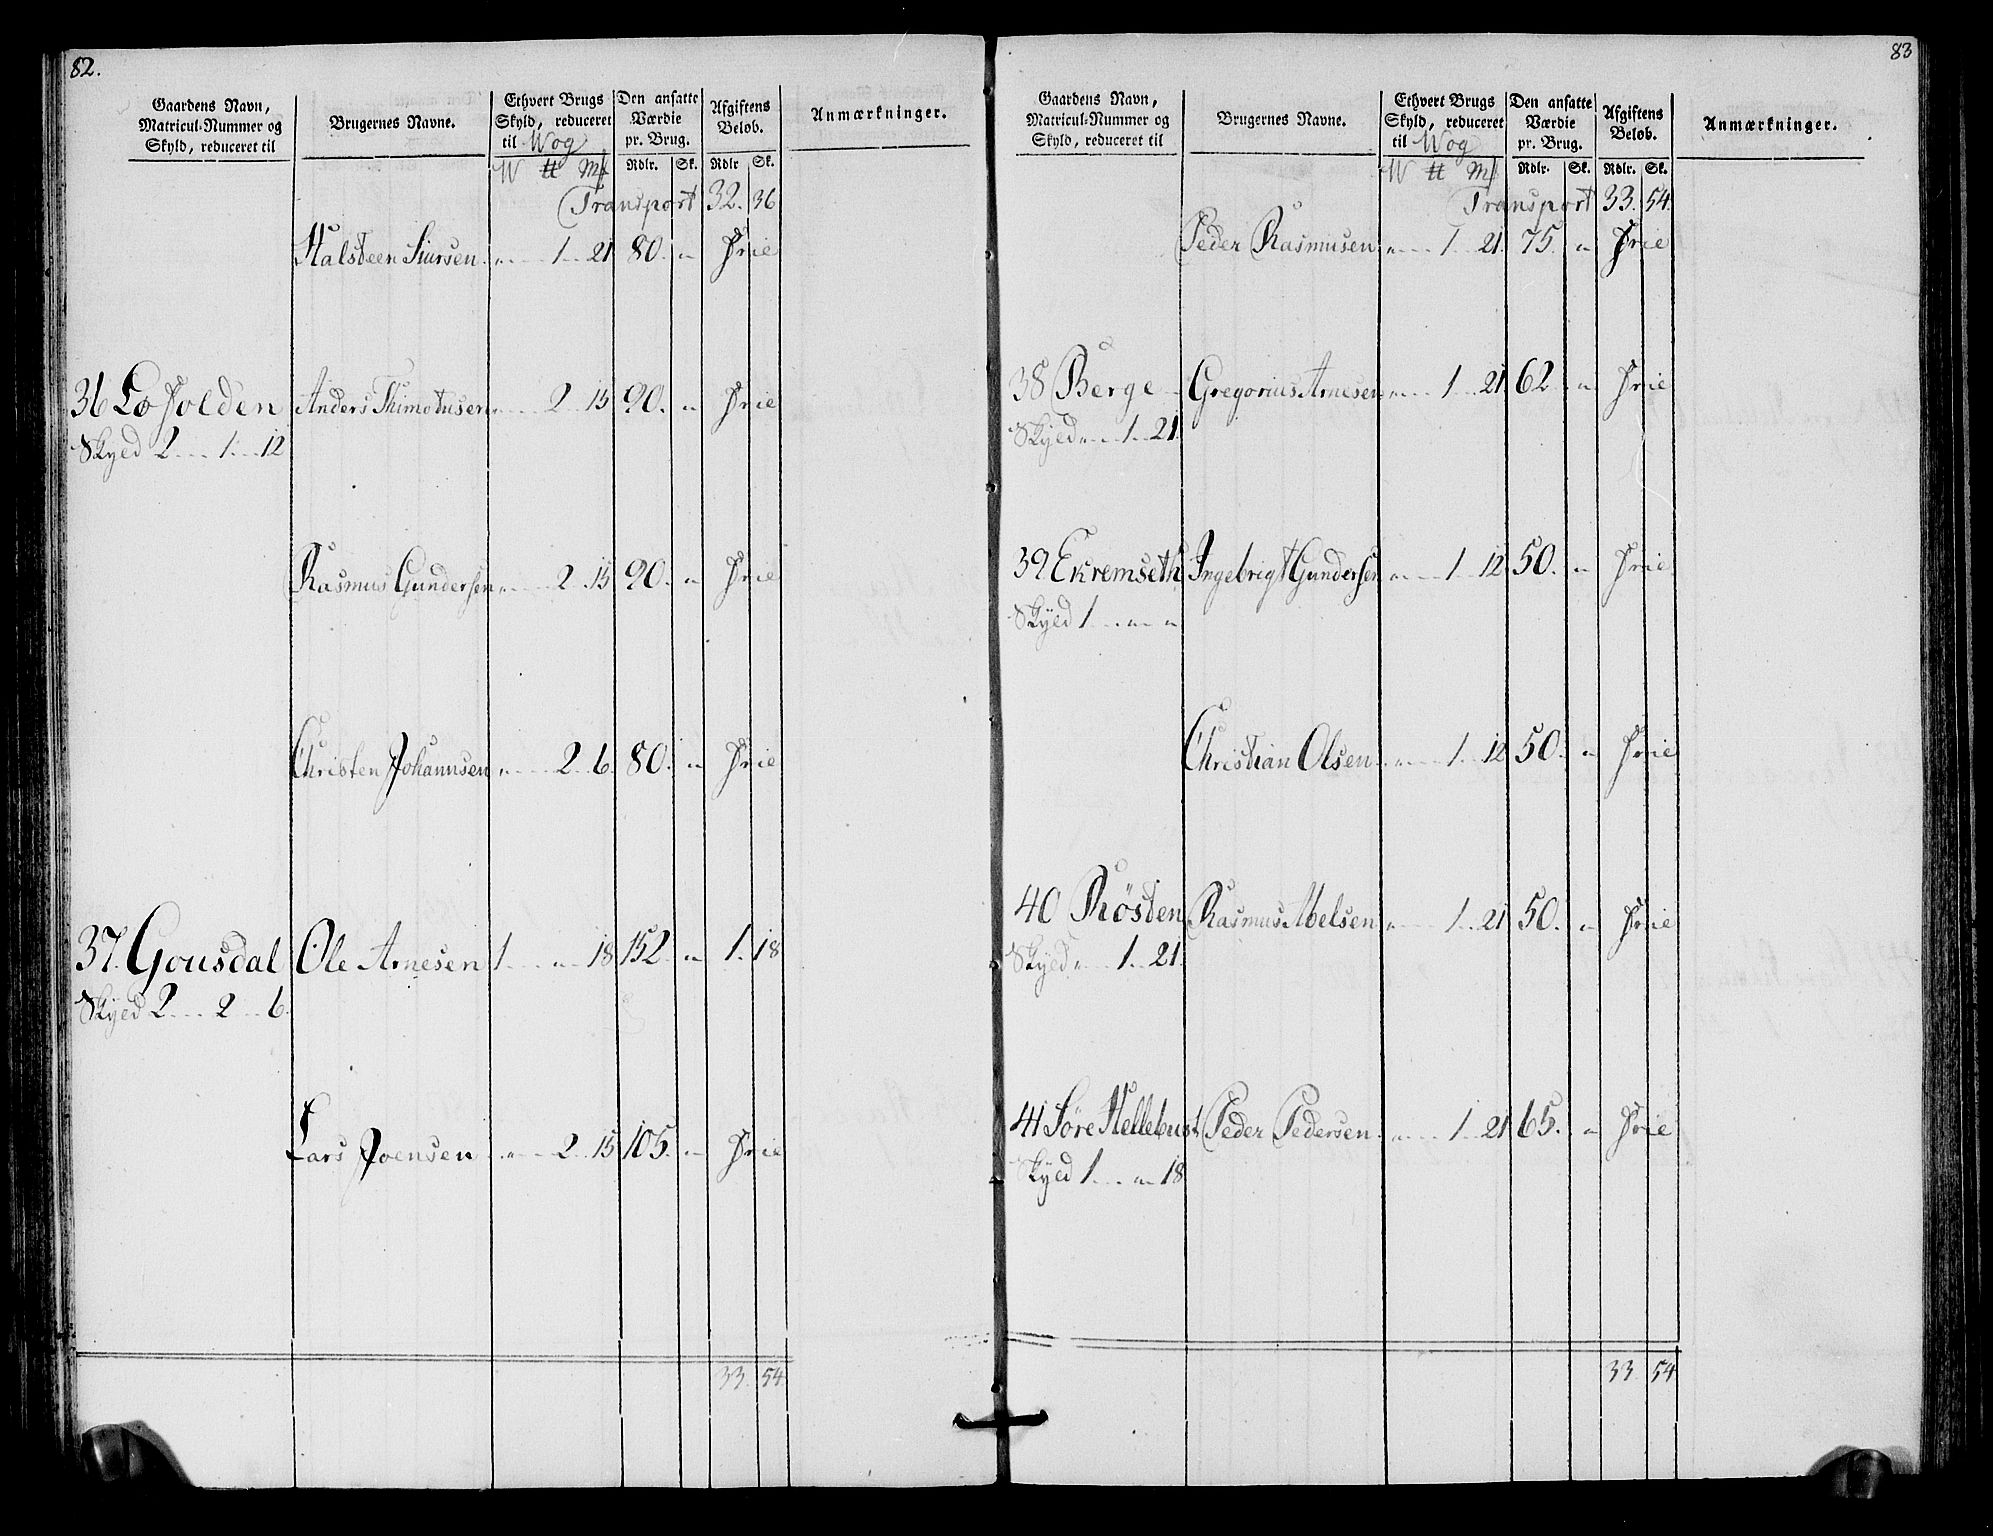 82.
Gaardens Navn, Matricul-Nummer og Skyld, reduceret til | Brugernes Navne. | Ethvert Brugs Skyld, reduceret til Wog | Den ansatte Værdie pr. Brug. | Afgiftens Beløb. | Anmærkninger.
W ℔ M𝑓 | Rdlr. Sk. | Rdlr Sk.
Transport 32. 36
Halsteen Siursen „ 1 21 80. „ Frie
36 Lo Folden Anders Thimotusen „ 2 15 90. „ Frie
Skyld 2 1 12
Rasmus Gundersen „ 2 15 90. „ Frie
Christen Johannsen „ 2 6 80. „ Frie
37. Gousdal Ole Arnesen 1 „ 18 152 „ 1. 18
Skyld 2 2 6.
Lars Joensen „ 2 15 105. „ Frie
33. 54
83
Gaardens Navn, Matricul-Nummer og Skyld, reduceret til | Brugernes Navne. | Ethvert Brugs Skyld, reduceret til Wog | Den ansatte Værdie pr. Brug. | Afgiftens Beløb. | Anmærkninger.
W ℔ M𝑓 | Rdlr. Sk. | Rdlr. Sk.
Transport 33. 54.
Peder Rasmusen „ 1 21. 75. „ Frie
38 Berge Gregorius Arnesen „ 1 21 62 „ Frie
Skyld „ 1 21.
39 Ekremseth Ingebrigt Gundersen „ 1 12 50. „ Frie
Skyld 1 „ „
Christian Olsen „ 1 12 50. „ Frie
40 Røsten Rasmus Abelsen „ 1 21 50. „ Frie
Skyld „ 1 21.
41 Søre Hellebust Peder Pedersen „ 1 21 65. „ Frie
Skyld 1 „ 18
33 54